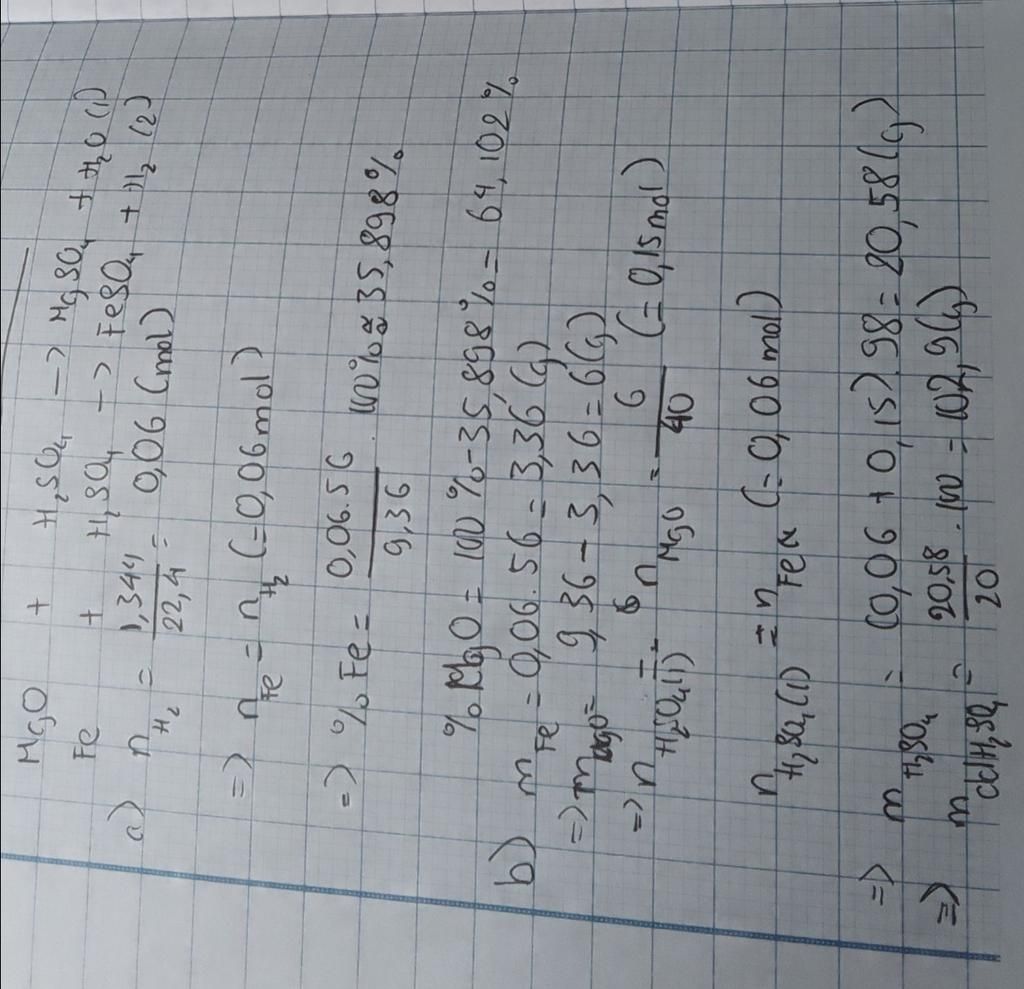 MgO + H₂SO₄ -> MgSO₄ + H₂O (1)
Fe + H₂SO₄ -> FeSO₄ + H₂ (2)
a) n H₂ = 1,344 / 22,4 = 0,06 (mol)
=> n Fe = n H₂ (= 0,06 mol)
=> % Fe = 0,06.56 / 9,36 . 100% ≈ 35,898%
% MgO = 100% - 35,898% = 64,102%
b) m Fe = 0,06.56 = 3,36 (g)
=> m MgO = 9,36 - 3,36 = 6 (g)
=> n H₂SO₄(1) = n MgO = 6 / 40 (= 0,15 mol)
n H₂SO₄(1) = n Fe (= 0,06 mol)
=> m H₂SO₄ = (0,06 + 0,15).98 = 20,58 (g)
=> m dd H₂SO₄ = 20,58 / 20 . 100 = 102,9 (g)